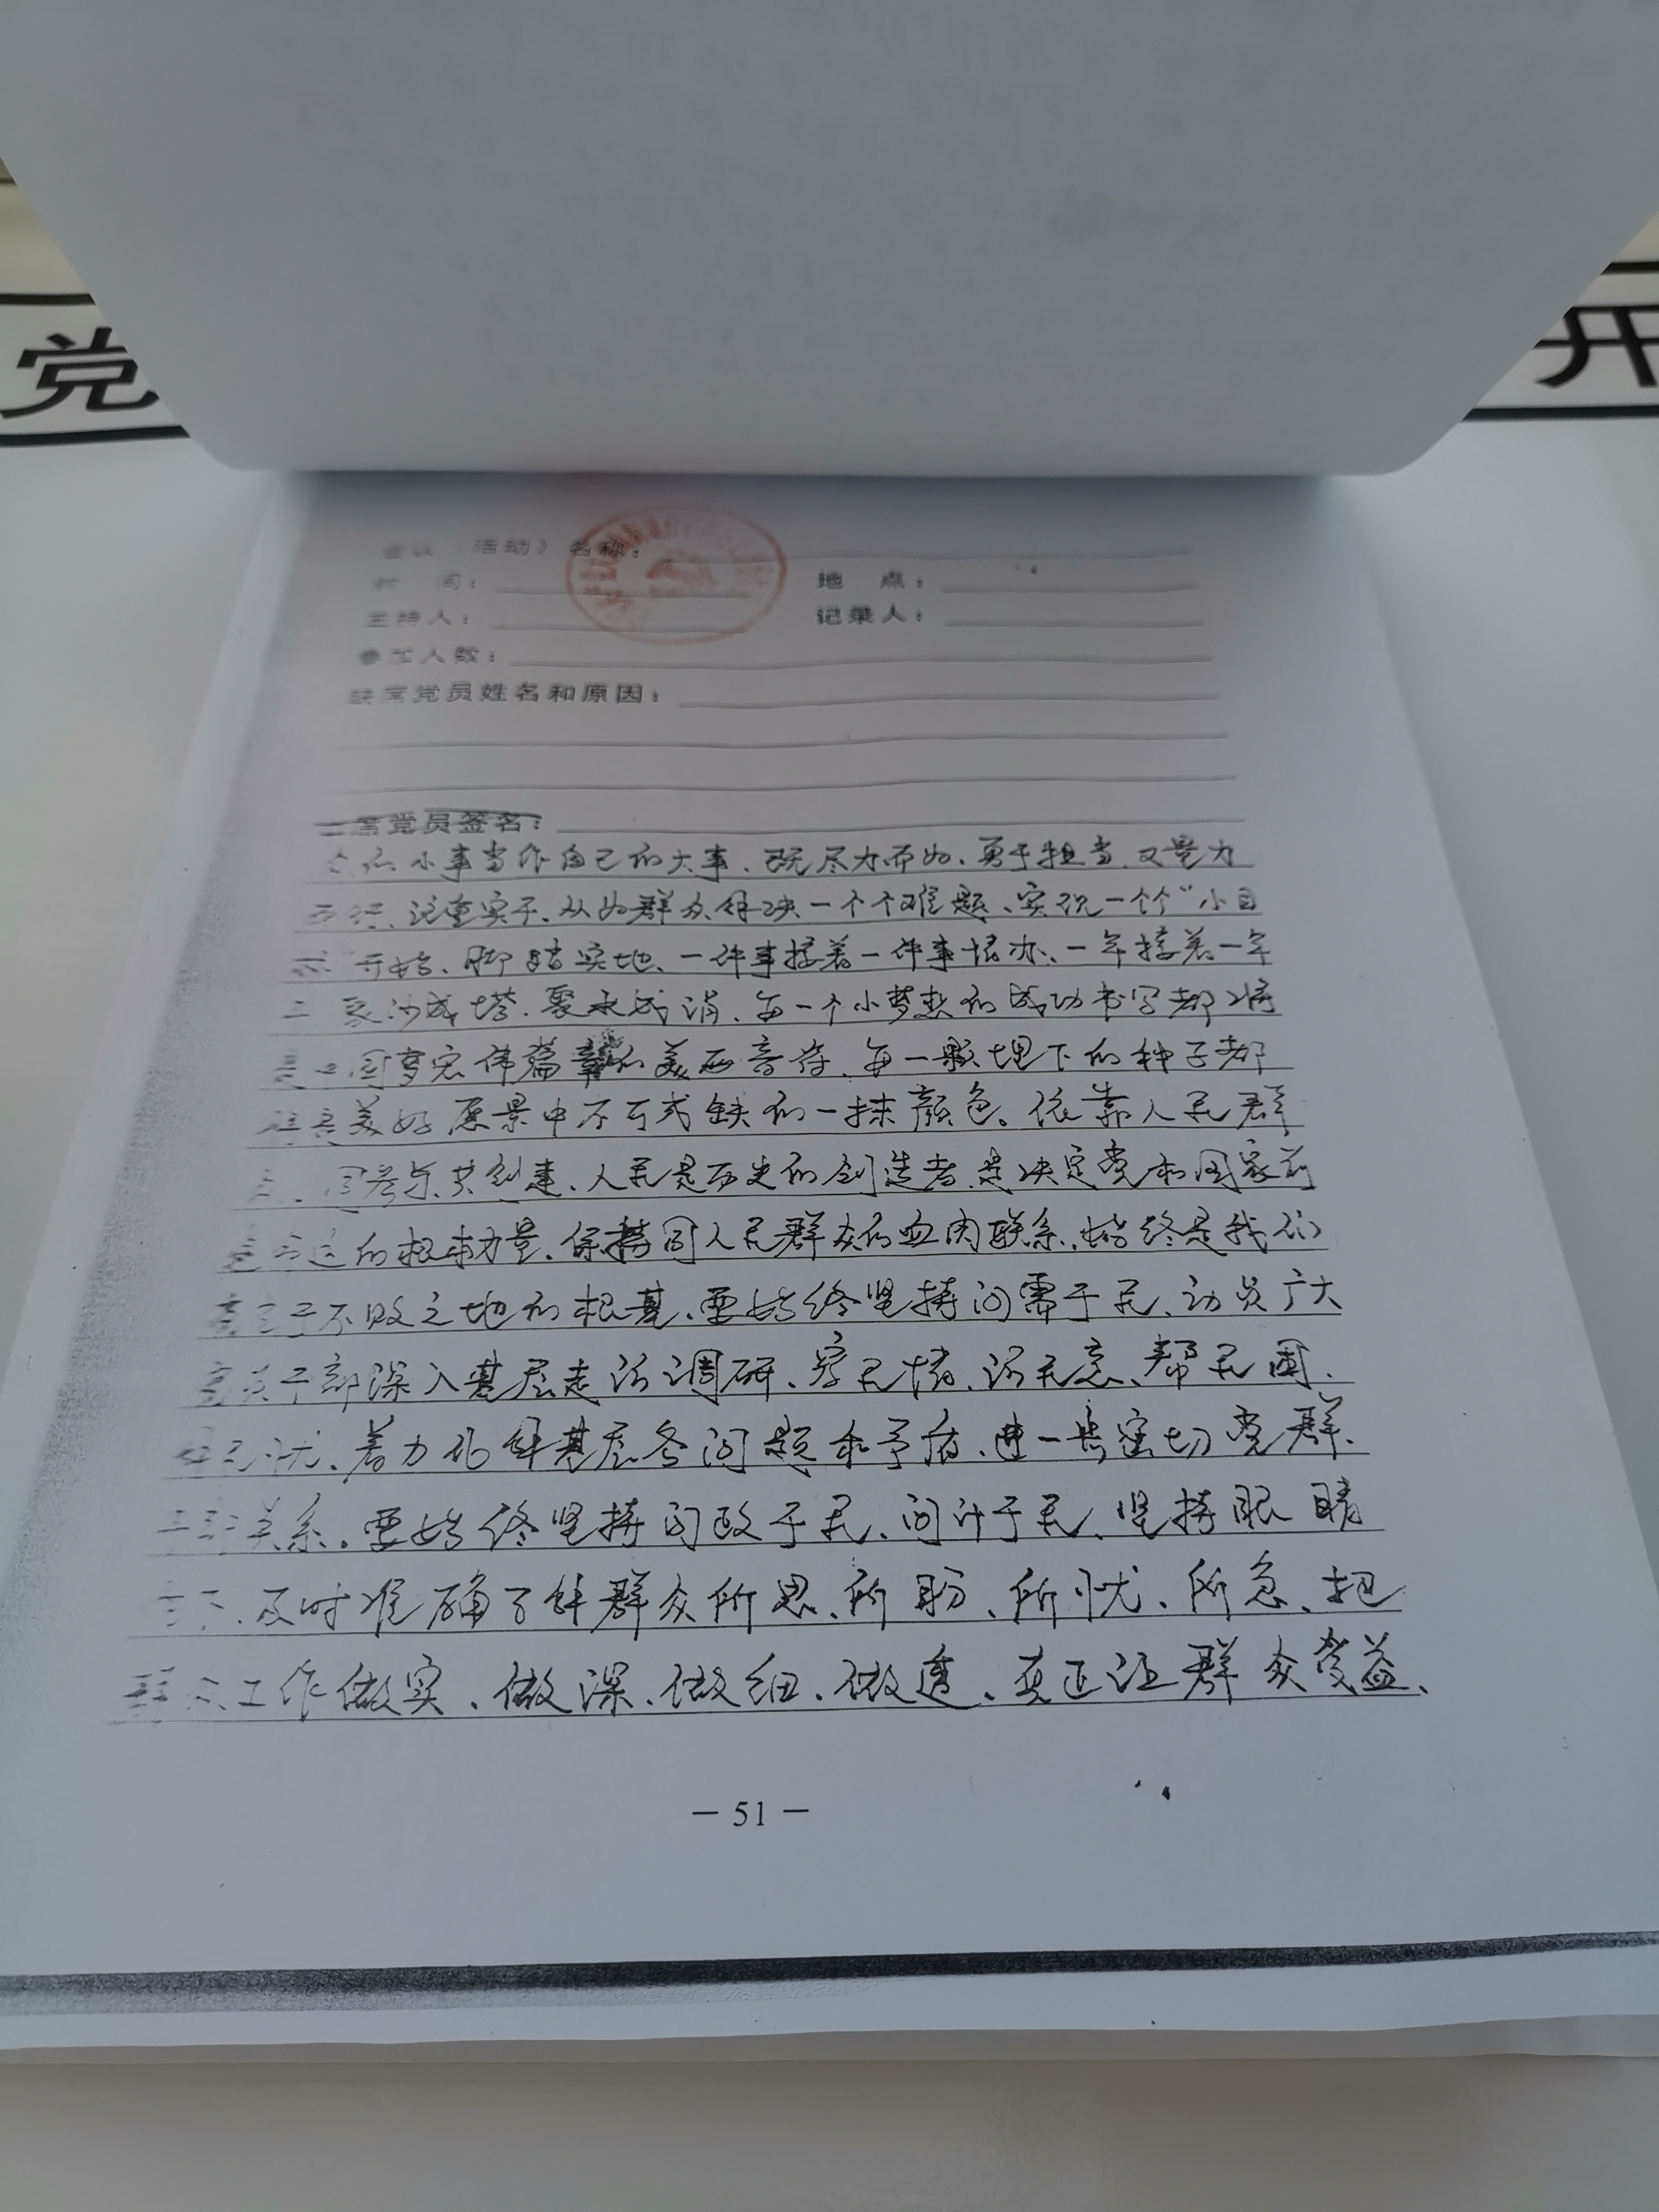 党
开
会议（活动）名称：
时 间：
地 点：
主持人：
记录人：
参加人数：
缺席党员姓名和原因：
席党员签名：
小事当作自己的大事、既尽力而为、勇于担当、又量力
而行、注重实干、从为群众解决一个个难题、实现一个个“小目
标”开始、脚踏实地、一件事接着一件事情办、一年接着一年
干 聚沙成塔、聚水成涓、每一个小梦想的成功书写都将
是中国梦宏伟篇章的美丽音符、每一颗埋下的种子都
美好愿景中不可或缺的一抹颜色。依靠人民群
众、同参与共创建、人民是历史的创造者、是决定党和国家前
途命运的根本力量、保持同人民群众的血肉联系、始终是我们
党立于不败之地的根基、要始终坚持问需于民、动员广大
党员干部深入基层走访调研、察民情、访民意、帮民困、
解民忧、着力化解基层各问题和矛盾、进一步密切党群、
干群关系。要始终坚持问政于民、问计于民、坚持眼睛
向下、及时准确了解群众所思、所盼、所忧、所急、把
群众工作做实、做深、做细、做透、真正让群众受益、
— 51 —